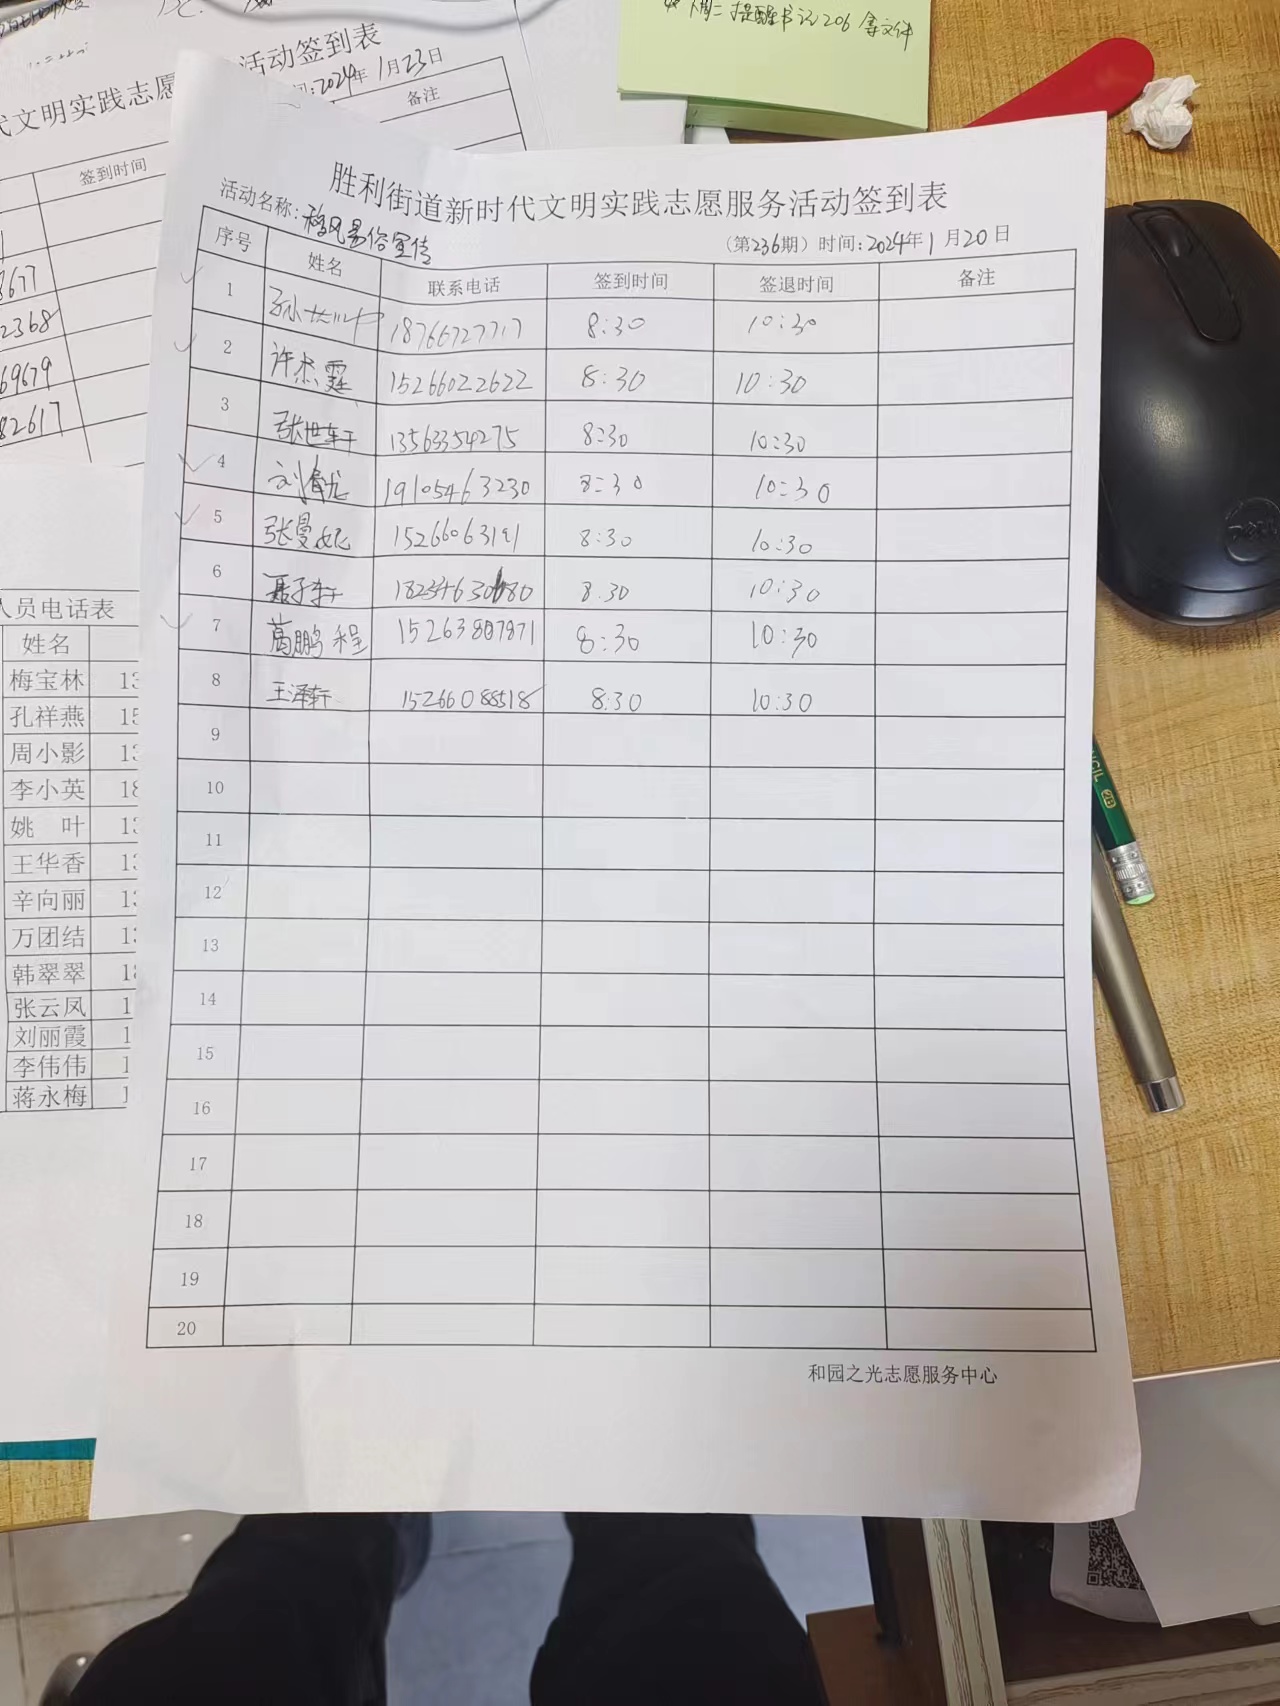 如下周二提醒书记206拿文件
活动签到表
代文明实践志愿
时间:2024年1月23日
签到时间
备注
3677
2368
69679
82617
胜利街道新时代文明实践志愿服务活动签到表
活动名称:移风易俗宣传
(第236期) 时间:2024年1月20日
序号 姓名 联系电话 签到时间 签退时间 备注
1 18766727717 8:30 10:30
2 许杰霆 15266022622 8:30 10:30
3 张世轩 13563354275 8:30 10:30
4 19105463230 8:30 10:30
5 张曼妮 15266063191 8:30 10:30
6 聂子轩 8:30 10:30
7 葛鹏程 15263807871 8:30 10:30
8 王泽轩 15266088518 8:30 10:30
9
10
11
12
13
14
15
16
17
18
19
20
和园之光志愿服务中心
人员电话表
姓名
梅宝林 13
孔祥燕 15
周小影 13
李小英 18
姚 叶 13
王华香 13
辛向丽 13
万团结 13
韩翠翠 18
张云凤 1
刘丽霞 1
李伟伟 1
蒋永梅 1
DELL